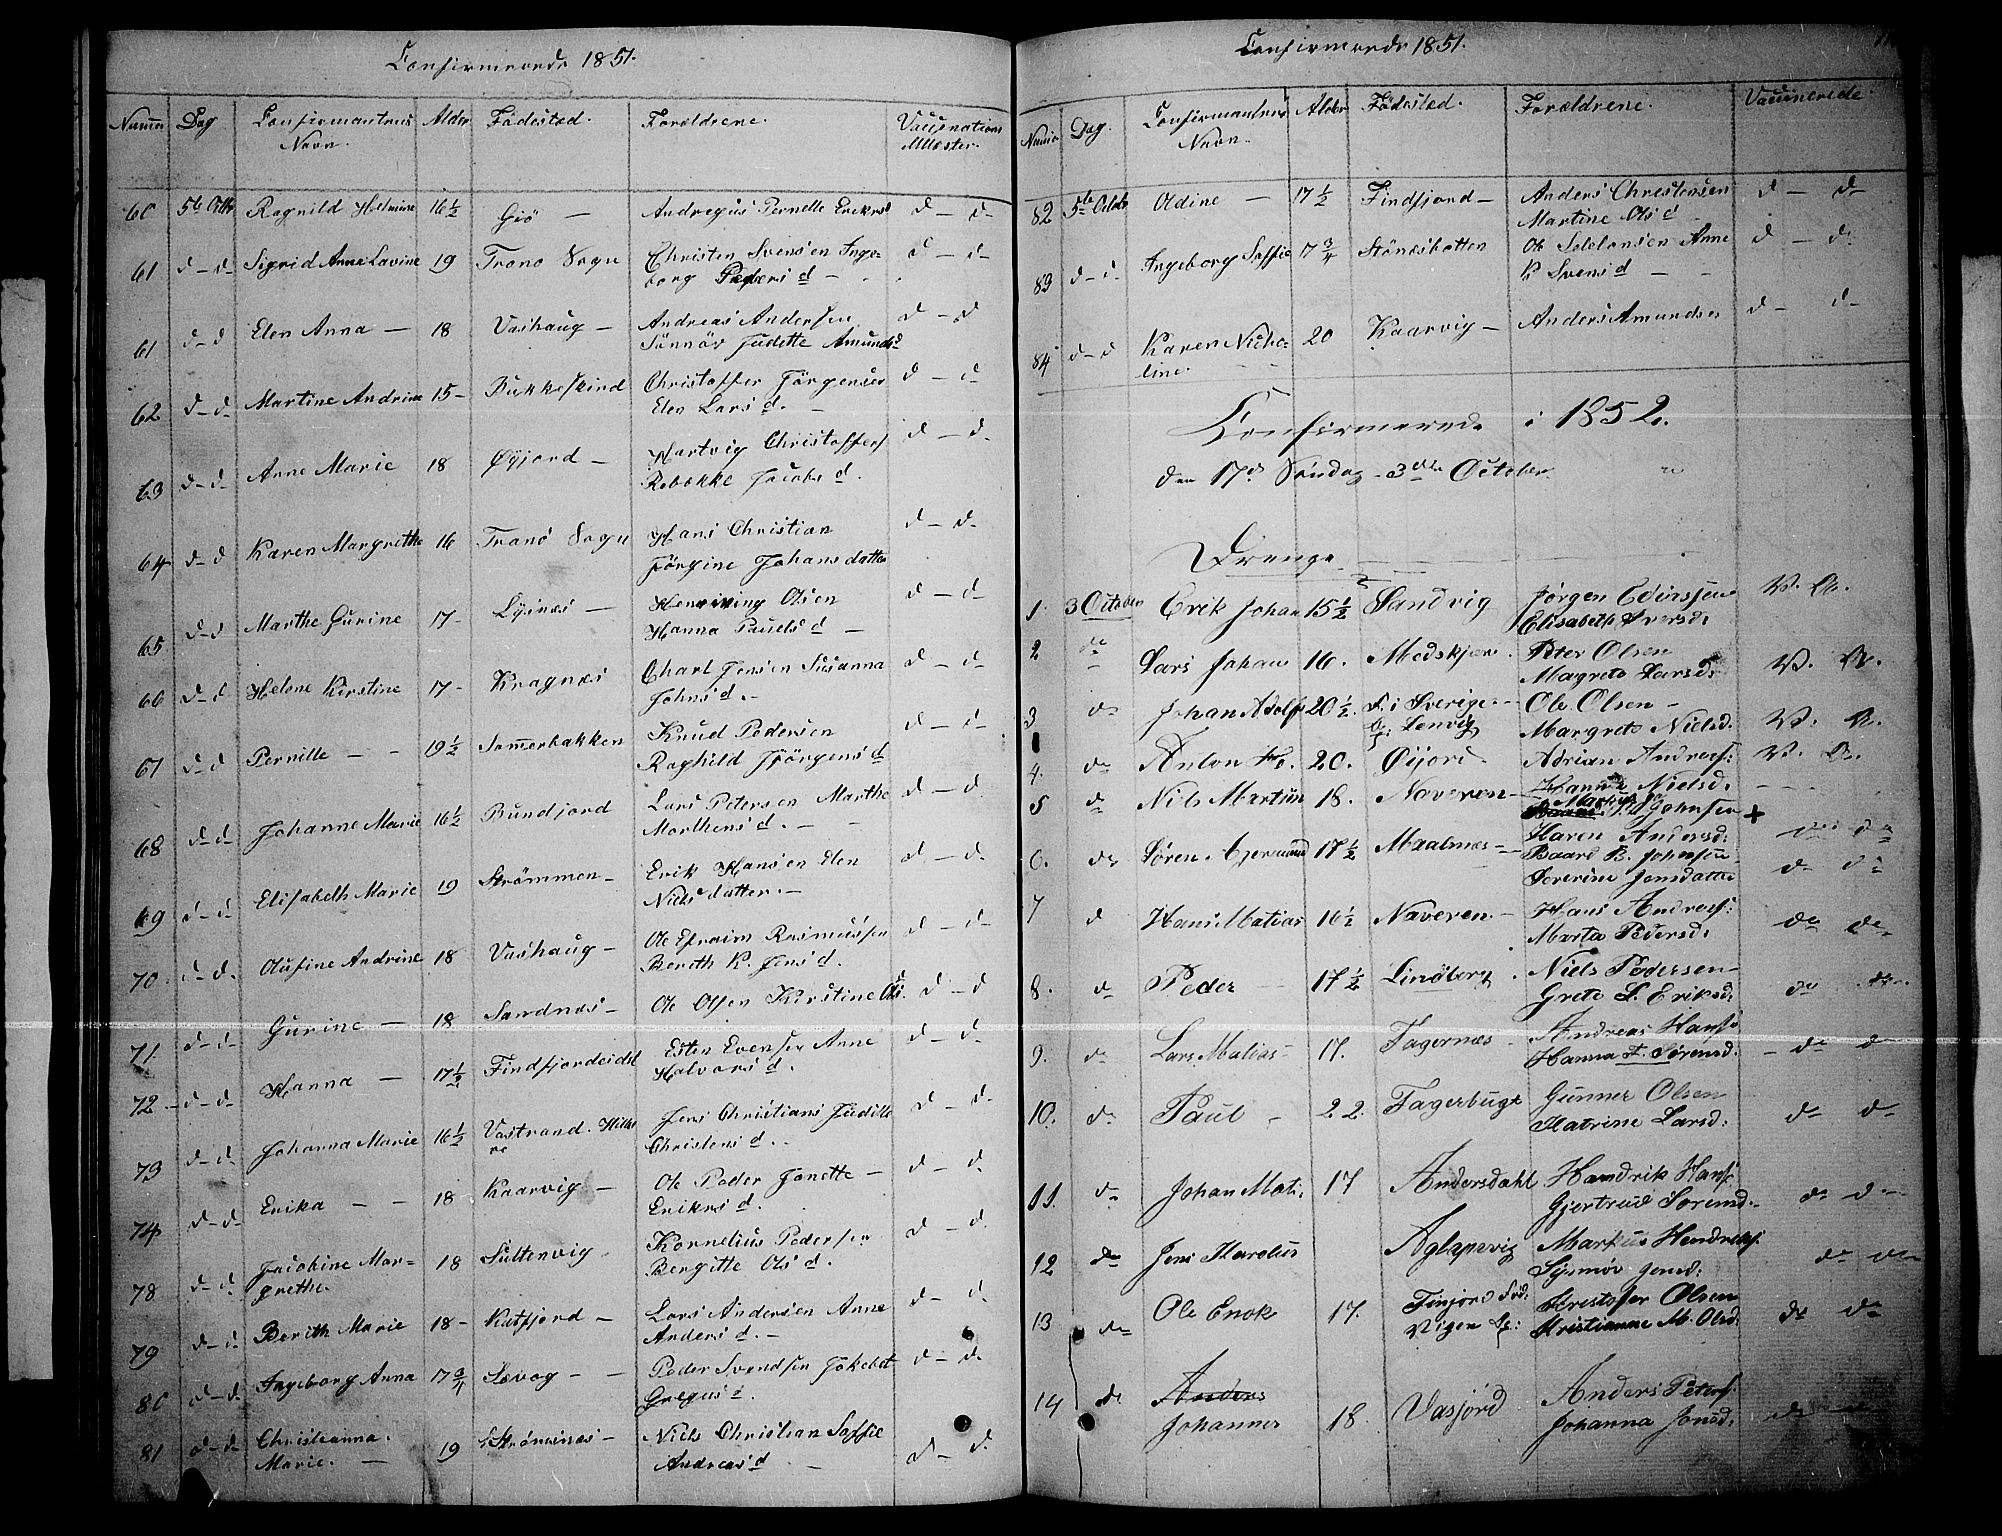 Confirmerede 1851.
Numer Dag Confirmantens Navn. Alder Fødested. Forældrene. Vaccinations Attester.
60 5te Octb Ragnild Helmine 16½ Giö — Andregus Pernelle Eriksd d — d
61 d — d Sigrid Anna Lavine 19 Tranö Sogn Christen Svensen Inge-
borg Peders d — d — d
61 d — d Elen Anna — 18 Vashaug — Andreas Andersen
Sönnöv Judette Amundsd d — d
62 d — d Martine Andrine 15 — Bukkeskind Christoffer Jörgensen
Elen Lars d. — d — d
63 d — d Anne Marie 18 Øÿjord — Hartvig Christoffers
Rebekke Jacobs d. d — d
64 d — d Karen Margrethe 16 Tranö Sogn Hans Christian
Jörgine Johansdatter d — d
65 d — d Marthe Gurine 17 — Lysnæs — Henning Olsen
Hanna Pauels d — d — d
66 d — d Helene Kirstine 17 — Kragnæs Charl Jensen Susanna
Johns d. — d — d
67 d — d Pernille — — 19½ Sommerbakken Knud Pedersen
Raghild Jörgens d d — d
68 d — d Johanne Marie 16½ Bundjord Lars Petersen Marthe
Morthens d. — d — d
69 d — d Elisabeth Marie 19 Strömmen — Erik Hansen Elen
Nielsdatter. — d — d
70 d — d Olufine Andrine 18 Vashaug — Ole Efraim Rasmussen
Berith K. Jens d. d — d
71 d — d Gurine — 18 Sandnæs — Ole Olsen Kirstine Ols d. d — d
72 d — d Hanna — 17½ Findfjordeidet Esten Evensen Anne
Halvors d. d — d
73 d — d Johanna Marie 16½ Vastrand. Hilles
Jens Christians Judille
Christens d. d — d
74 d — d Erika — — 18 Kaarvig — Ole Peder Jonette —
Eriks d. d — d
78 d — d Jacobine Mar-
grethe. 18 Sultenvig Kornelius Pedersen
Bergitte Ols d. d — d
79 d — d Berith Marie 18 — Katfjord — Lars Andersen Anne
Anders d. — d — d
80 d — d Ingeborg Anna 17¾ Sævog — — Peder Svendsen Jokebet
Gregus d. d — d
81 d — d Christianna
Marie. — 19 Strömsnæs — Niels Christian Soffie
Andreas d — d — d
Confirmerede 1851.
Numer Dag. Confirmantens Navn. Alder Fødested. Forældrene. Vaccinerede.
82 5te Octob Oldine — 17½ Findfjord — Anders Christensen
Martine Ols d d — d
83 d — d Ingeborg Soffie 17¾ Stönesbotten Ole Salelonsen Anne
K. Svens d — — d — d
84 d — d Karen Nicho-
line. 20 Kaarvig — Anders Amundsen d — d
Confirmerede i 1852.
den 17de Søndag — 3die October
Drenge
1 3 October Erik Johan 15½ Sandvig Jørgen Edinsjen
Elisabeth Iversd: V. A.
2 do Lars Johan 16. Medskjer Peter Olsen
Magrete Larsd: V. A.
3 do Johan Adolf 20½. F. i Sverige
Lenvig Ole Olsen —
Margrete Nielsd. V. A.
4. do Anton 20. Øijord. Adrian Andreas:
Hanna Nielsd: V. A.
5 do Nils Martin 18. Naveren — Johnsen +
Karen Andersd:
6. do Søren 17½ Maalnæs — Baard B. Johnsen
Severine Jensdatter do do
7 d Hans Matias 16½ Naveren. — Hans Andreas:
Marta Pedersd: do do
8. do Peder — 17½ Lindberg Niels Pedersen —
Grete L. Eriksd: do
9. do Lars Matias 17. Fagernæs — Andreas Hans:
Hanna Sørensd. — do do
10. do Paul — 22. Fagerbugt Gunner Olsen
Katrine Larsd: do do
11. do Johan Mati: 17 Andersdahl Hendrik Hans:
Gjertrud Sørensd. do do
12 do Jens Karolus Aglapsvig Markus Hendreks:
Synnöv Jensd: do do
13 do Ole Enok 17. Finjord Fød:
Vigen Kristofer Olsen
Kristianne M. Olsd: do do
14 do Anders
Johannes 18. Vasjord Anders Peters:
Johanna Jonsd: do do